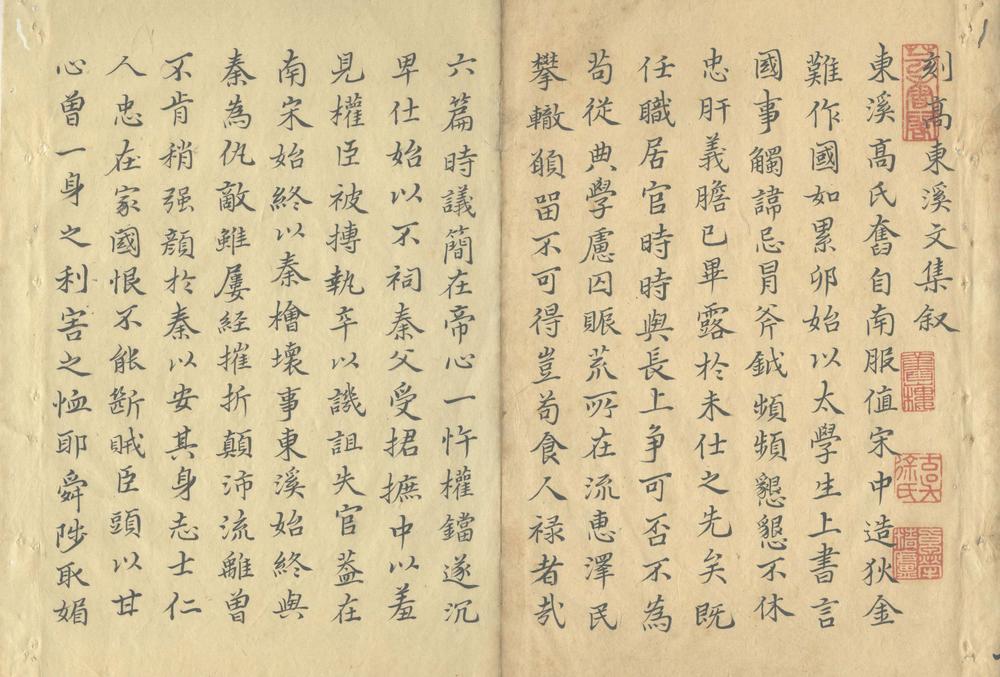 刻高東溪文集叙
東溪高氏奮自南服值宋中造狄金
難作國如累卵始以太學生上書言
國事觸諱忌冒斧鉞頻頻懇懇不休
忠肝義膽已畢露於未仕之先矣既
任職居官時時與長上争可否不為
苟從典學慮囚賑荒所在流恵澤民
攀轍願留不可得豈苟食人禄者㢤
六篇時議簡在帝心一忤權鐺遂沉
卑仕始以不祠秦父受捃摭中以羞
見權臣被摶執卒以譏詛失官葢在
南宋始終以秦檜壞事東溪始終與
秦為仇敵雖屢経摧折顛沛流離曾
不肯稍强顔於秦以安其身志士仁
人忠在家國恨不能斷賊臣頭以甘
心曾一身之利害之恤耶舜陟取媚